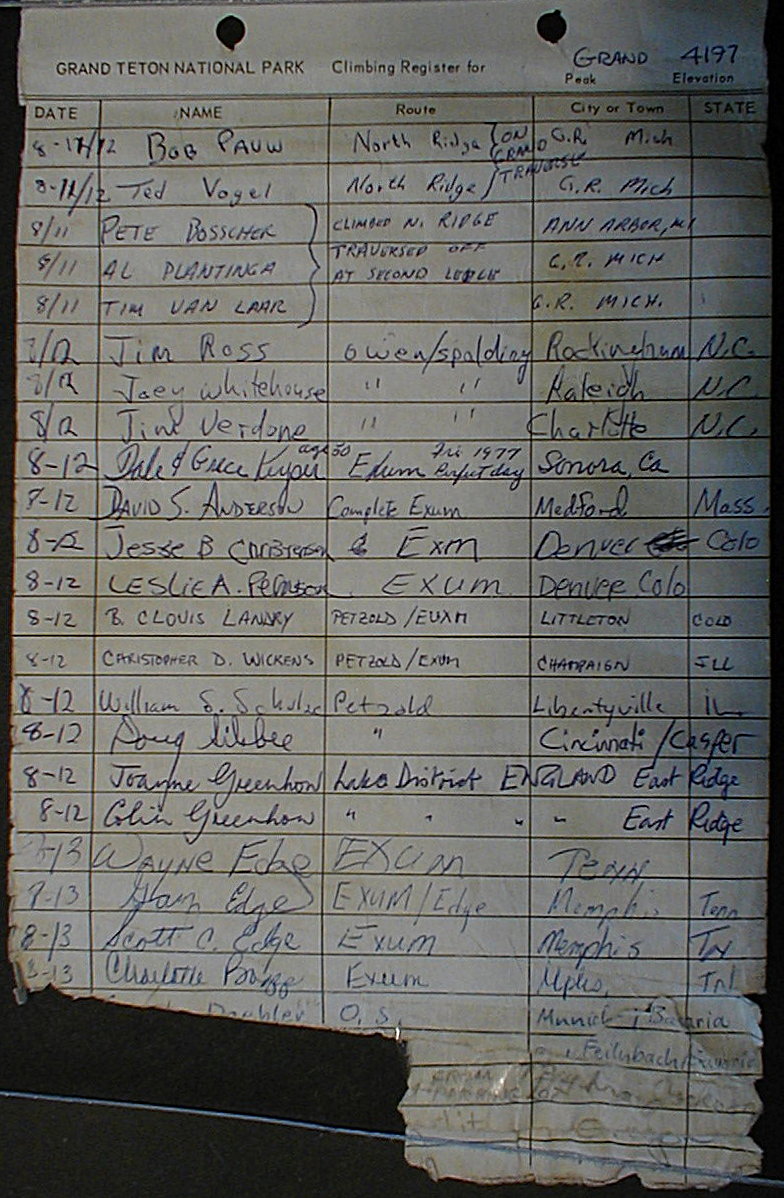 GRAND 4197
GRAND TETON NATIONAL PARK Climbing Register for Peak Elevation
DATE NAME Route City or Town STATE
8-11/12 BOB PAUW North Ridge ON GRAND TRAVERSE G.R. Mich
8-11/12 Ted Vogel North Ridge G.R. Mich
8/11 PETE BOSSCHER CLIMBED N. RIDGE ANN ARBOR, MI
8/11 AL PLANTINGA TRAVERSED OFF G.R. MICH
8/11 TIM VAN LAAR AT SECOND G.R. MICH.
8/12 Jim Ross Owen/spalding Rockingham N.C.
8/12 Joey Whitehouse " " Raleigh N.C.
8/12 Jim Verdone " " Charlotte N.C.
8-12 Dale & Grace age 50 Exum Fri 1977 Perfect day Sonora, Ca
8-12 DAVID S. ANDERSON Complete Exum Medford Mass.
8-12 Jesse B Exm Denver Colo
8-12 LESLIE A. EXUM Denver Colo
8-12 B. CLOUIS LANDRY PETZOLD/EUXM LITTLETON COLO
8-12 CHRISTOPHER D. WICKENS PETZOLD/EXUM CHAMPAIGN ILL
8-12 William S. Schulze Petzold Libertyville IL
8-12 Doug " Cincinnati / Casper
8-12 Joanne Greenhow Lake District ENGLAND East Ridge
8-12 Colin Greenhow " " " " East Ridge
8-13 WAYNE Edge EXUM TENN
8-13 Edge EXUM/Edge Memphis Tenn
8-13 Scott C. Edge Exum Memphis Tn
8-13 Charlotte Exum Mphs. Tn
O.S. Munich Bavaria